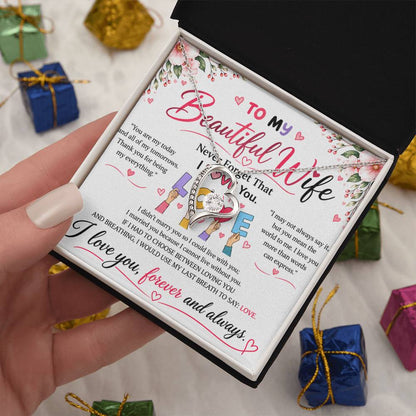 TO MY
Beautiful Wife
Never Forget That
I LOVE You.
"You are my today
and all of my tomorrows.
Thank you for being
my everything."
LOVE
"I may not always say it,
but you mean the
world to me. I love you
more than words
can express."
I didn't marry you so I could live with you;
I married you because I cannot live without you.
IF I HAD TO CHOOSE BETWEEN LOVING YOU
AND BREATHING, I WOULD USE MY LAST BREATH TO SAY: LOVE
I love you, forever and always.